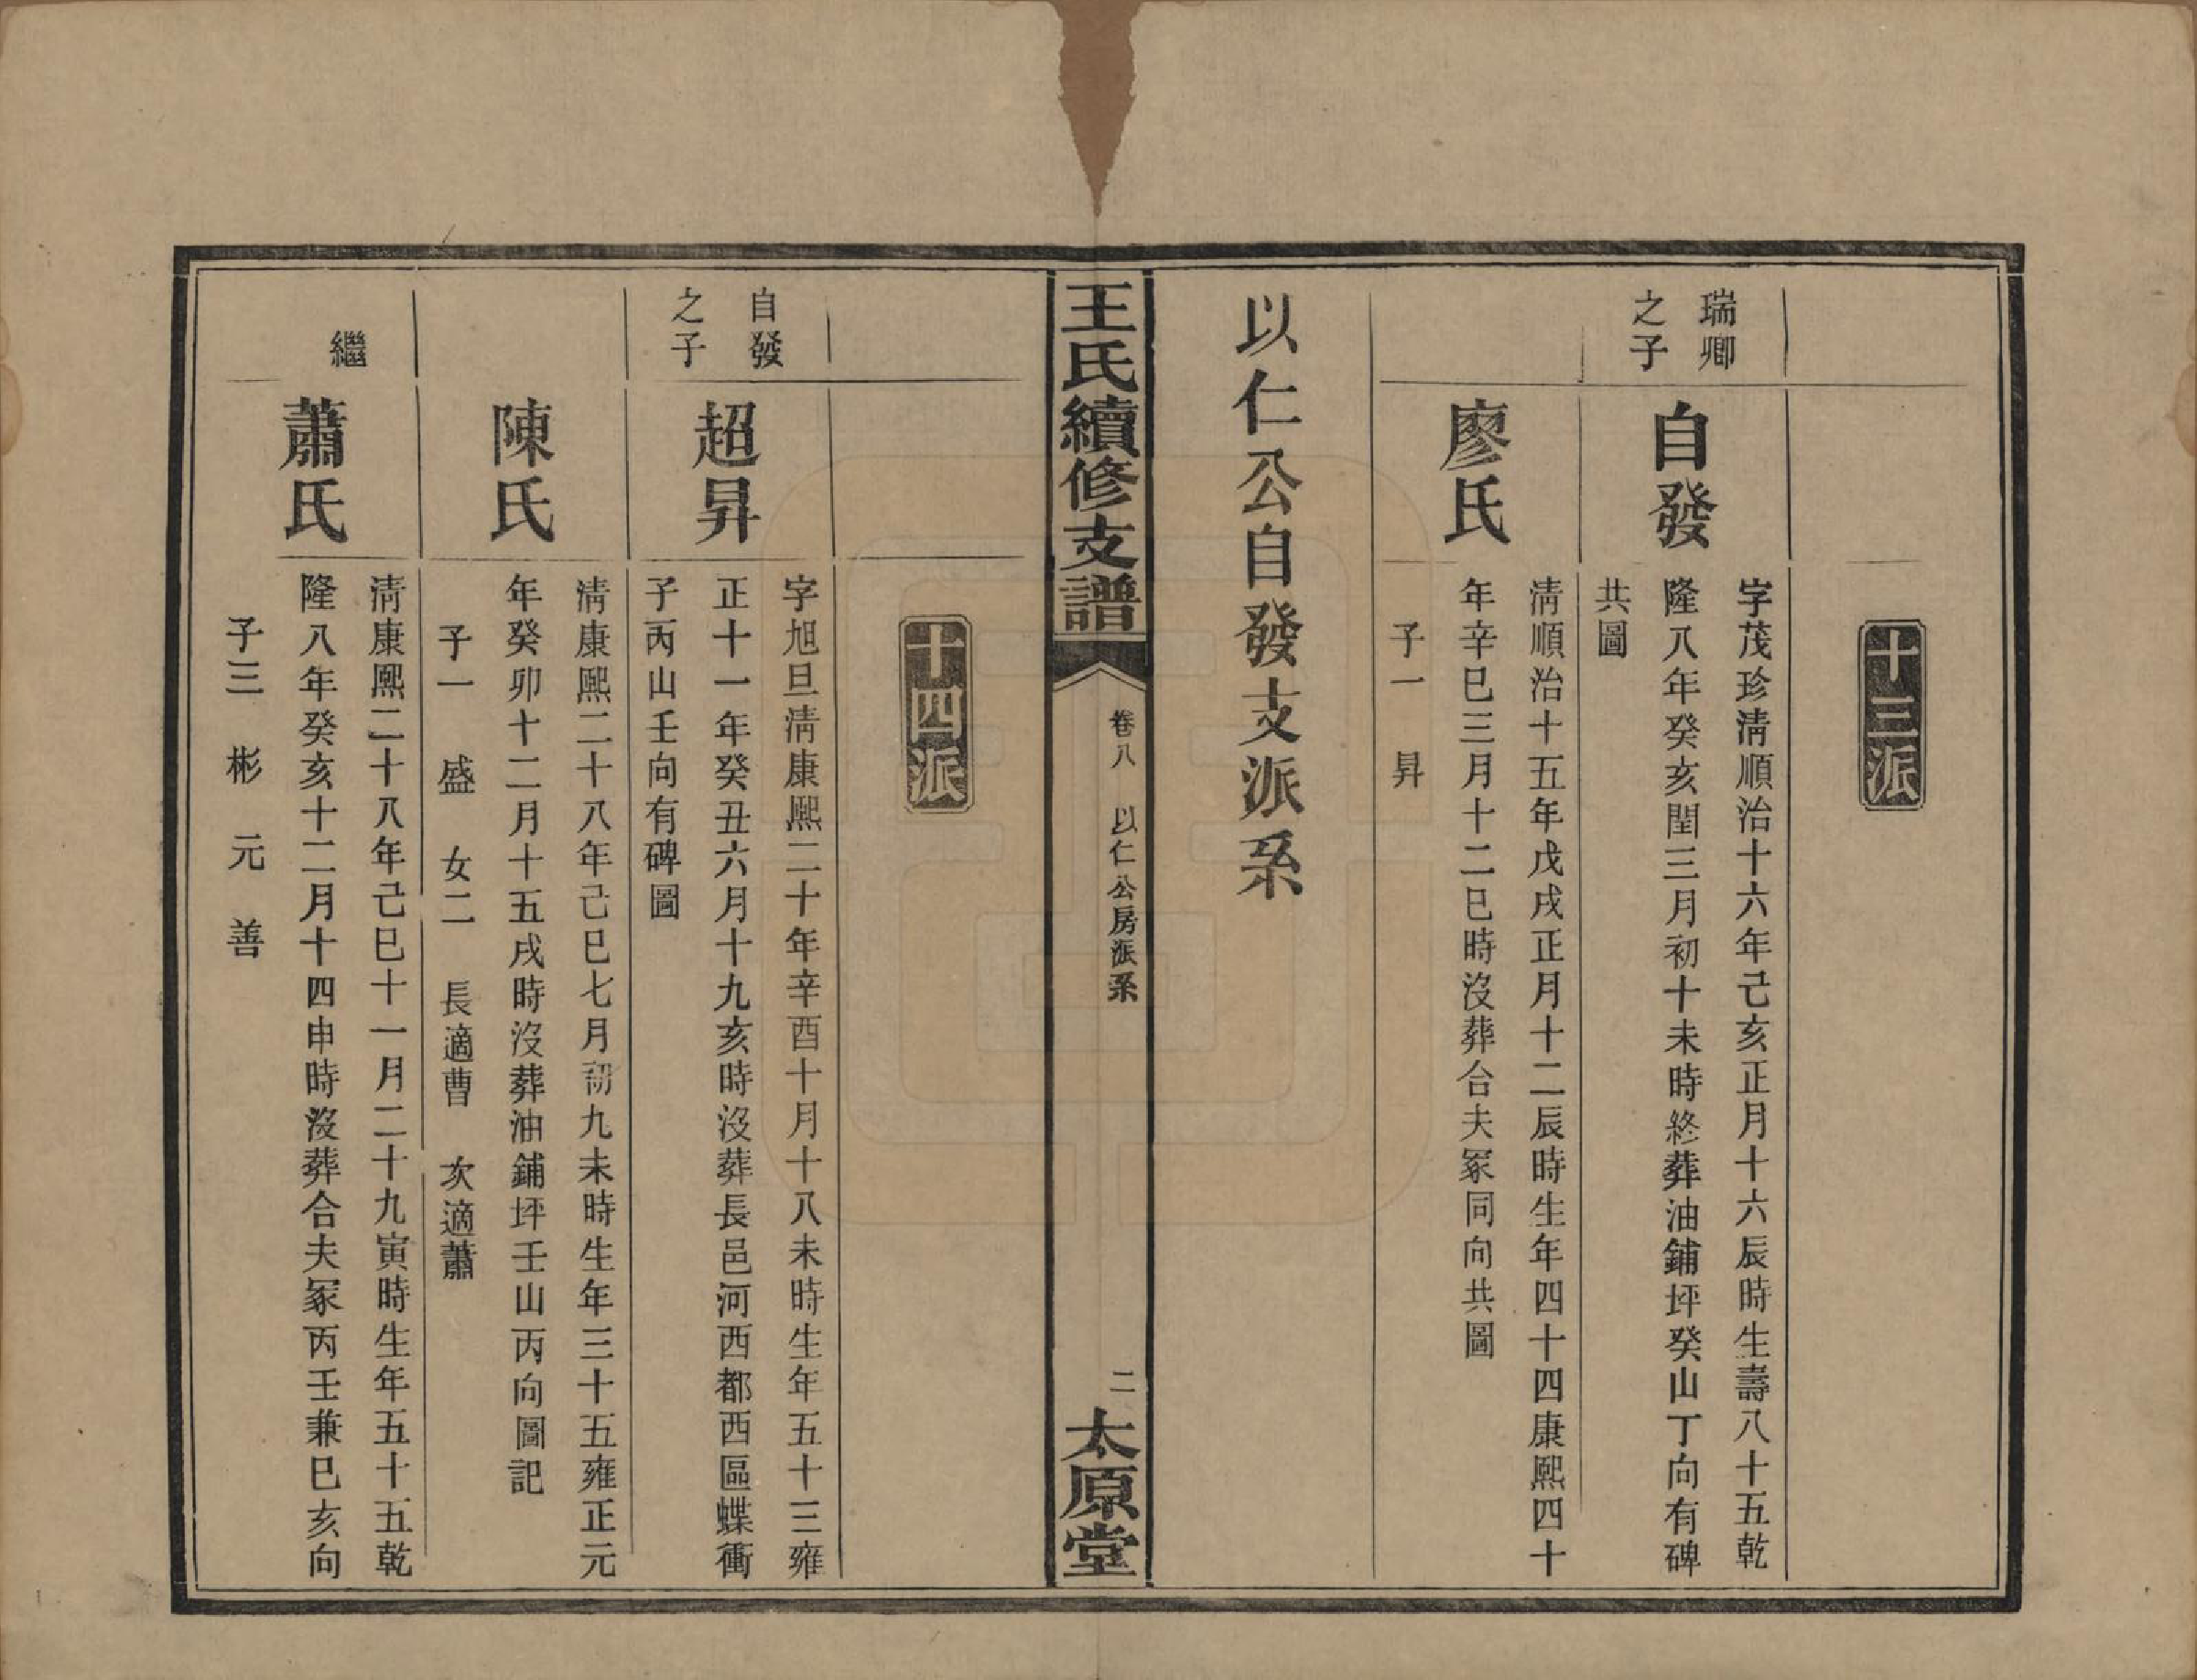 十三派
瑞卿
之子
自發
字茂珍淸順治十六年己亥正月十六辰時生壽八十五乾
隆八年癸亥閏三月初十未時終葬油鋪坪癸山丁向有碑
共圖
廖氏
淸順治十五年戊戌正月十二辰時生年四十四康熙四十
年辛巳三月十二巳時沒葬合夫冢同向共圖
子一　昇
以仁公自發支派系
王氏續修支譜
卷八　以仁公房派系
二
太原堂
十四派
自發
之子
超昇
字旭旦淸康熙二十年辛酉十月十八未時生年五十三雍
正十一年癸丑六月十九亥時沒葬長邑河西都西區蝶衝
子丙山壬向有碑圖
陳氏
淸康熙二十八年己巳七月初九未時生年三十五雍正元
年癸卯十二月十五戌時沒葬油鋪坪壬山丙向圖記
子一　盛　女二　長適曹　次適蕭
繼
蕭氏
淸康熙二十八年己巳十一月二十九寅時生年五十五乾
隆八年癸亥十二月十四申時沒葬合夫冢丙壬兼巳亥向
子三　彬　元　善